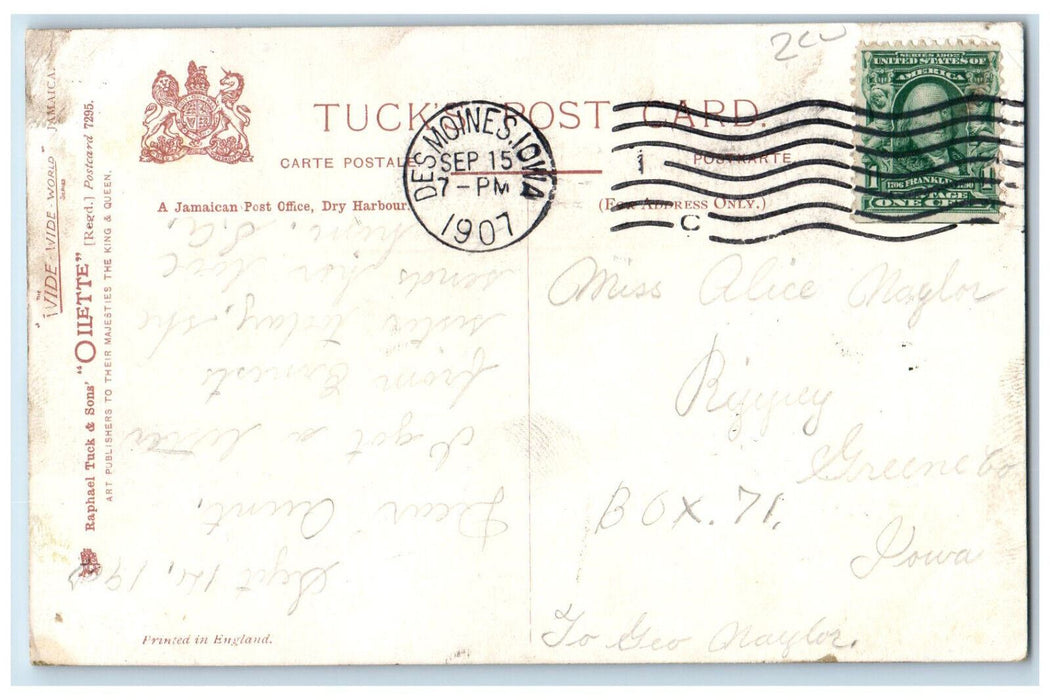 2cw
TUCK'S POST CARD.
CARTE POSTALE
POSTKARTE
A Jamaican Post Office, Dry Harbour.
(FOR ADDRESS ONLY.)
DES MOINES, IOWA
SEP 15
7-PM
1907
1
C
SERIES 1902
UNITED STATES OF
AMERICA
1706 FRANKLIN 1790
ONE CENT
THE
"WIDE-WIDE-WORLD"
SERIES
JAMAICA.
Raphael Tuck & Sons' "OILETTE" [Regd.] Postcard 7295.
ART PUBLISHERS TO THEIR MAJESTIES THE KING & QUEEN.
Sept 14, 190
Dear Aunt.
I got a letter
from Ernests
sister today, she
sends her love
Miss Alice Naylor
Rippey
Greene Co
BOX. 71.
Iowa
To Geo Naylor.
Printed in England.